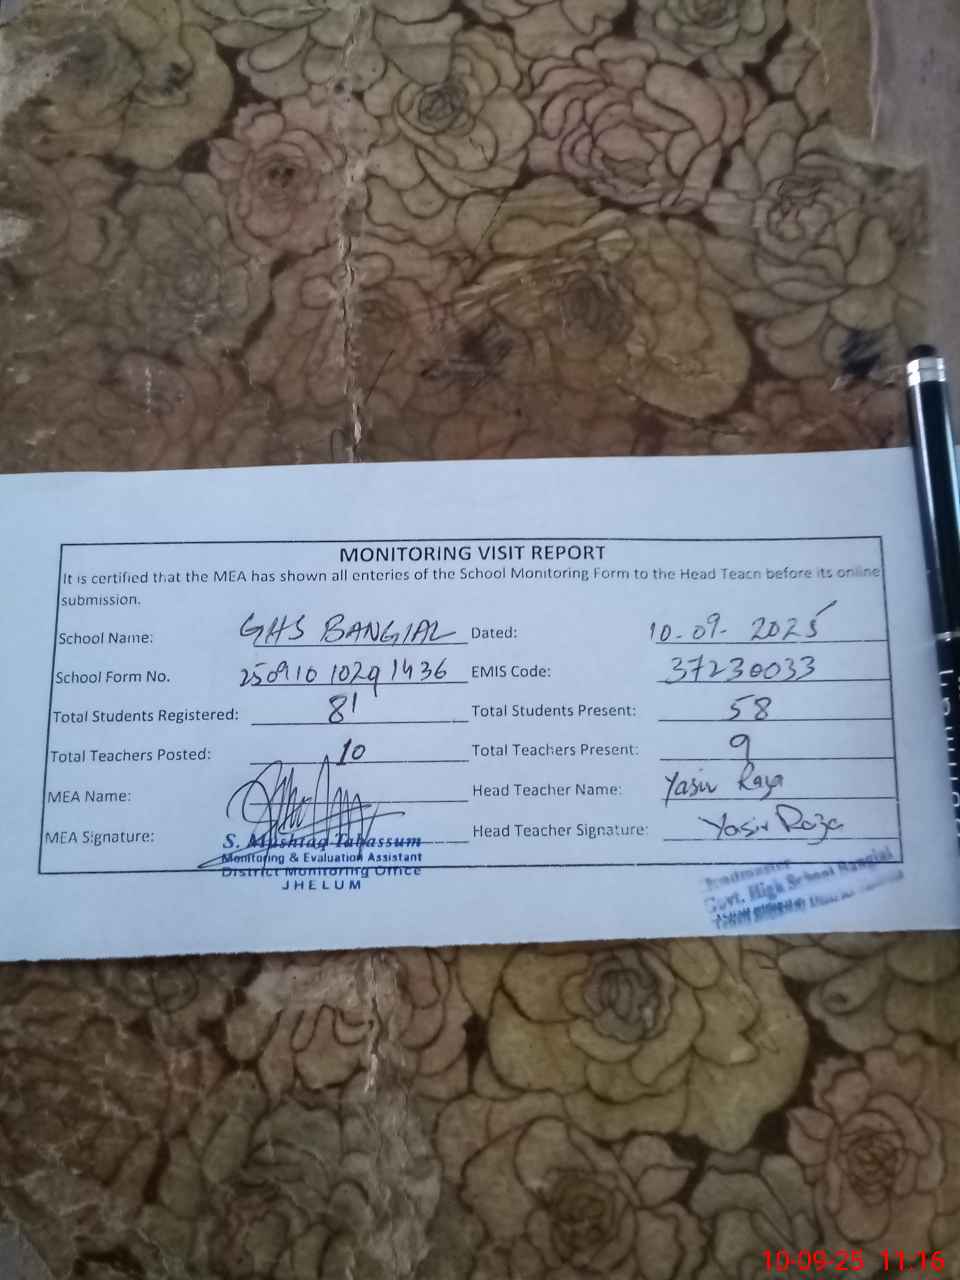 MONITORING VISIT REPORT
It is certified that the MEA has shown all enteries of the School Monitoring Form to the Head Teacn before its online
submission.
School Name: GHS BANGIAL Dated: 10-09-2025
School Form No. 250910 1029 1436 EMIS Code: 37230033
Total Students Registered: 81 Total Students Present: 58
Total Teachers Posted: 10 Total Teachers Present: 9
MEA Name: Head Teacher Name: Yasir Raza
MEA Signature: Head Teacher Signature: Yasir Raza
S. Mushtaq Tabassum
Monitoring & Evaluation Assistant
District Monitoring Office
JHELUM
Headmaster
Govt. High School Bangial
10-09-25 11:16